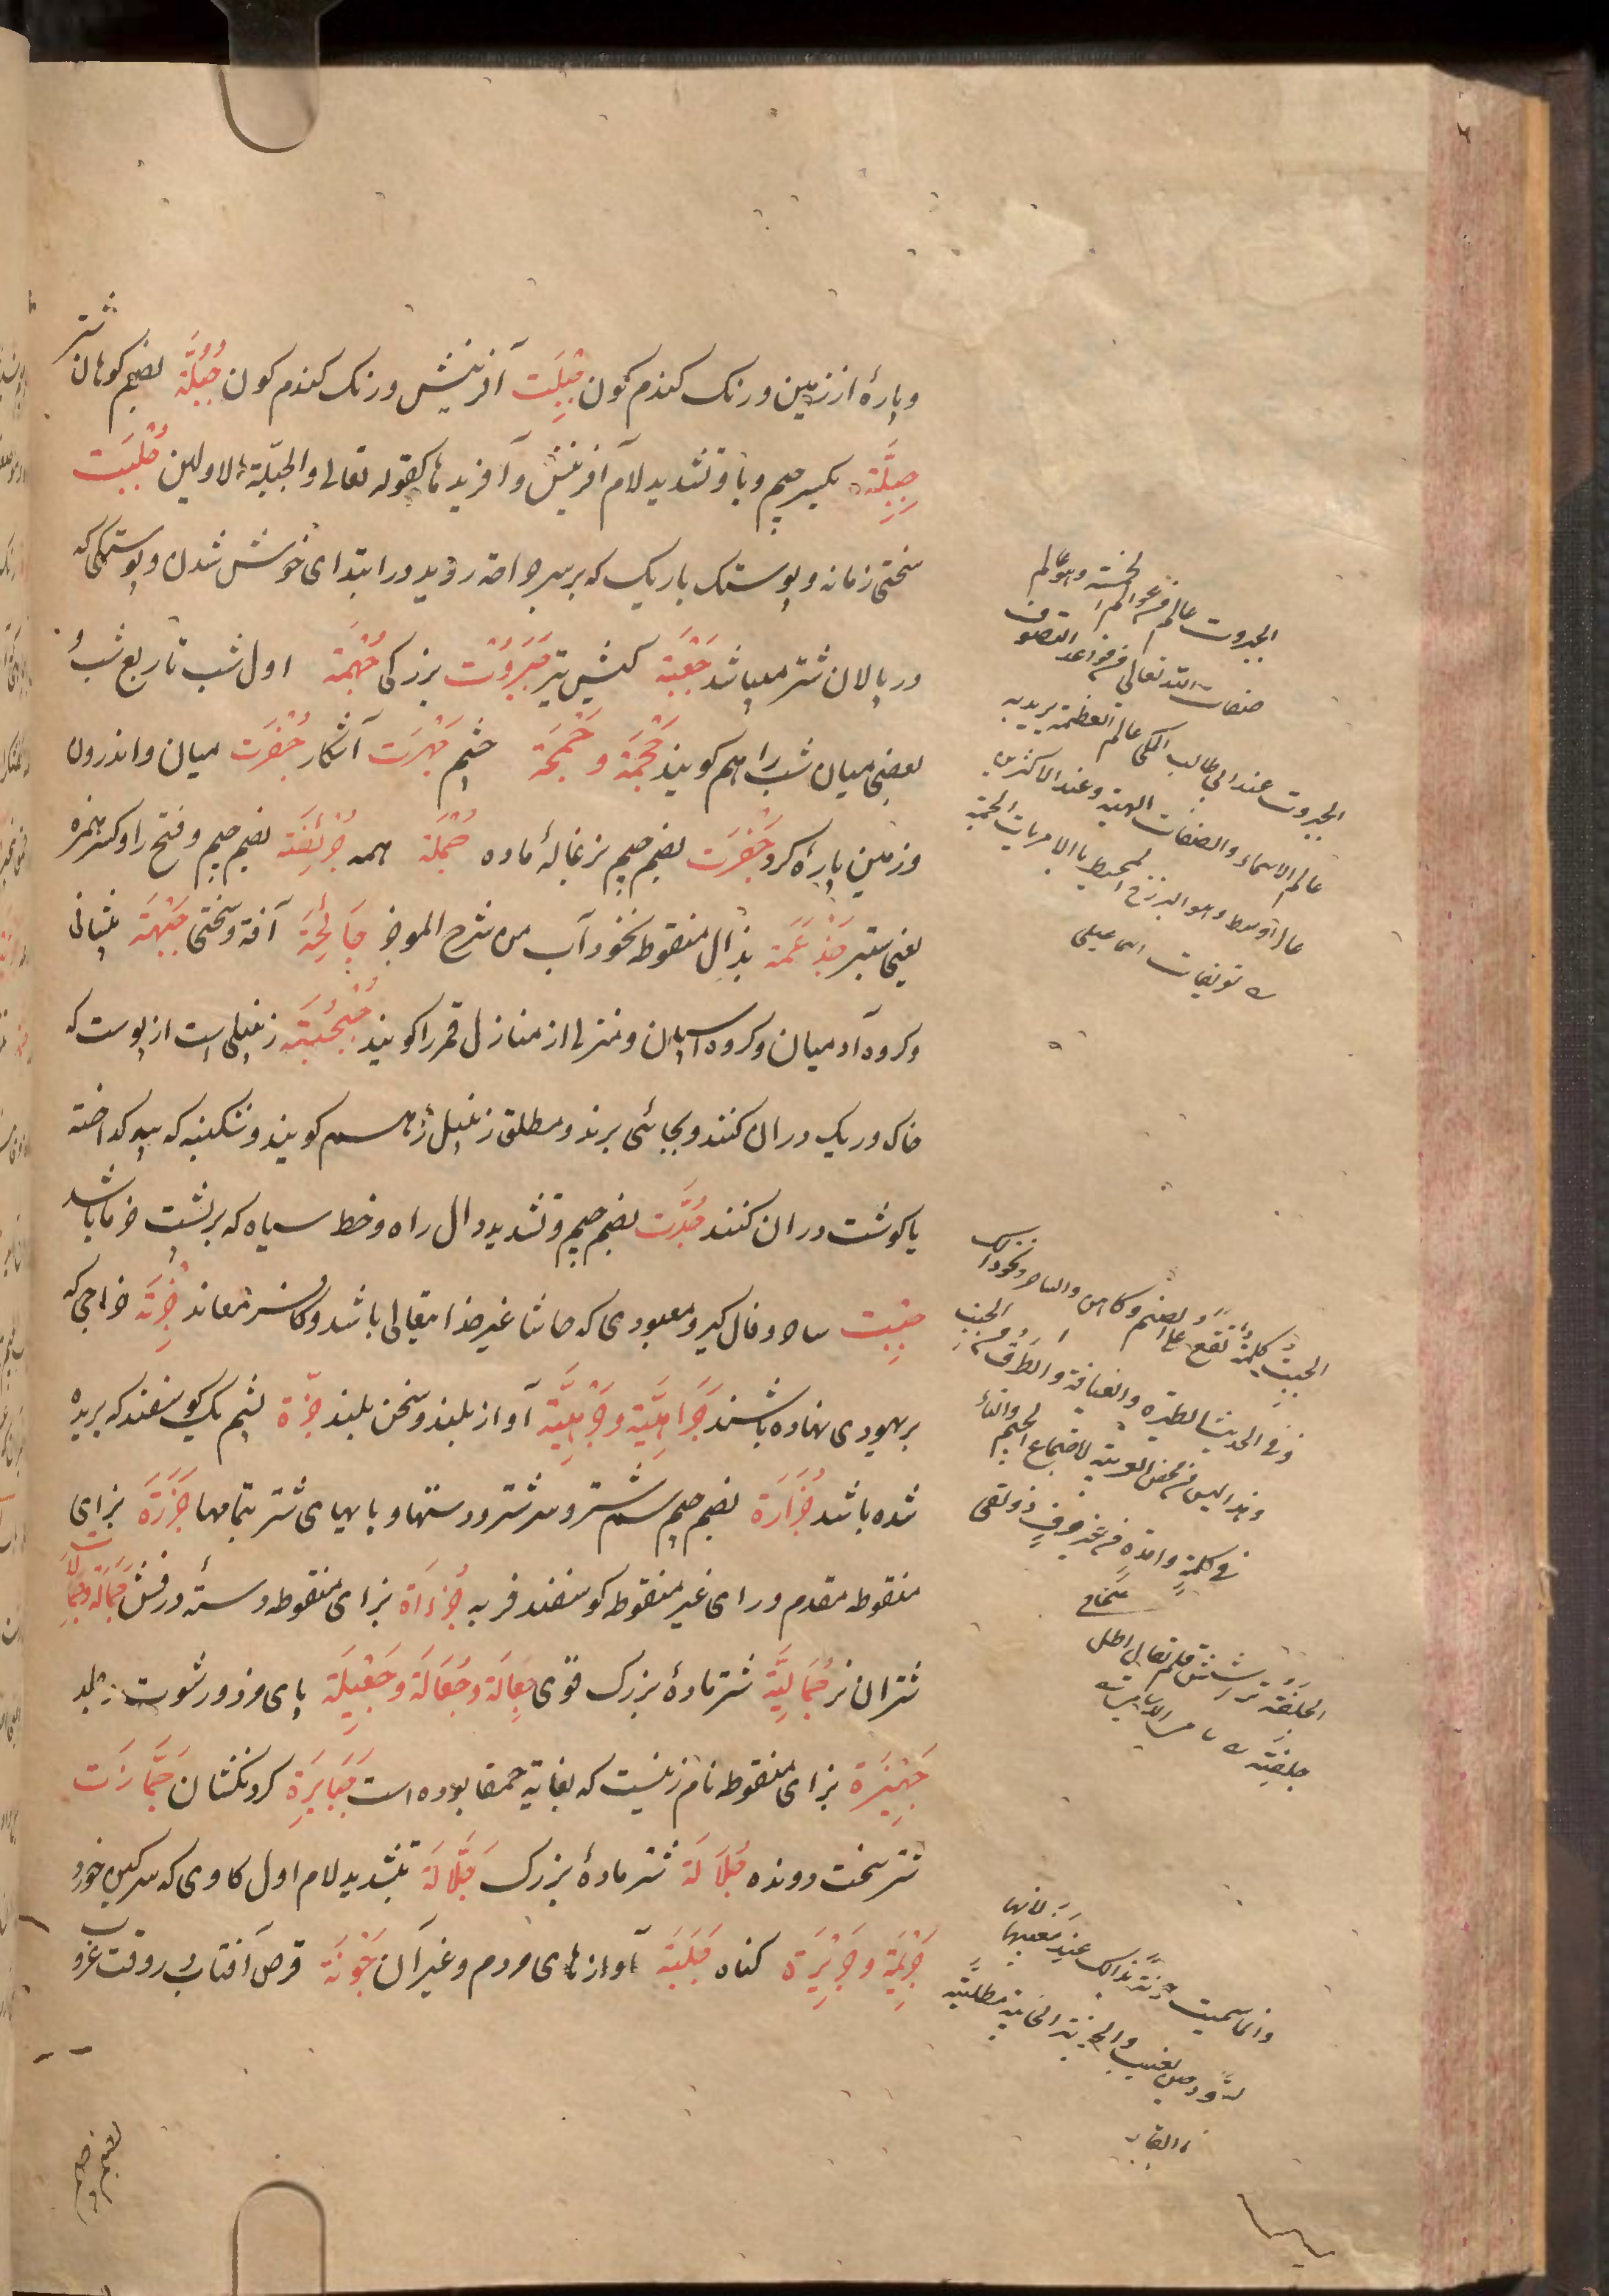 وپارهٔ از زمین ورنک کندم کون جِبِلَت آفرینش ورنک کندم کون جُبُلَّة بضم کوهان شتر
جِبِلَّة بکسر جیم وبا وتشدید لام آفرینش وآفریدها کقوله تعالی والجبلّة الاولین جُلْبَت
سختی زمانه وپوستک باریک که بر سر جراحة روید در ابتدای خوش شدن وپوستکی که
در پالان شتر میباشد جَعْبَة کیش تیر جَبَرُوْت بزرکی جُهْمَة اول شب تا ربع شب و
بعضی میان شب را هم کویند جَحْمَة و جَحْمَة خشم جَهْرَت آشکار جُفْرَت میان واندرون
وزمین پاره کرد جَفْرَت بضم جیم بزغالهٔ ماده جُمْلَة همه جُرَئِضَة بضم جیم وفتح را وکسر همزه
یعنی ستبر جَذْعَمَة بذال منقوطه نخود آب من شرح الموجز جَائِحَة آفة وسختی جَبْهَة پیشانی
وکروه آدمیان وکروه اسپان ومنزلی از منازل قمر را کویند جُبْجُبَة زنبیلی است از پوست که
خاک وریک در ان کنند وبجائی برند ومطلق زنبیل را هم کویند وشکنبه که پیه کداخته
یا کوشت در ان کنند جُدَّت بضم جیم وتشدید دال راه وخط سیاه که بر پشت خر باشد
جِبْت ساحر وفال کیر ومعبودی که حاشا غیر خدا یتعالی باشد وکافر معاند جِزْیَة خراجی که
بر یهودی نهاده باشند جَرَاهِیَّة وجَرْهِیَّة آواز بلند وسخن بلند جِزَّة پشم یک کوسفند که بریده
شده باشد جُزَارَة بضم جیم سم شتر وسر شتر ودستها وپایهای شتر بتمامها جَزَرَة بزای
منقوطه مقدم ورای غیر منقوطه کوسفند فربه جُزْءَاة بزای منقوطه دستهٔ درفش جِمَالَة وجِمَالَات
شتران نر جُمَالِیَّة شتر مادهٔ بزرک قوی جِعَالَة وجُعَالَة وجَعِیْلَة پای مزد ورشوت
جَهِیْزَة بزای منقوطه نام زنیست که بغایة حمقا بوده است جَبَابِرَة کردنکشان جَمَّازَت
شتر سخت رونده جُلَالَة شتر مادهٔ بزرک جَلَّالَة بتشدید لام اول کاوی که سرکین خورد
جَرِیْمَة وجَرِیْرَة کناه جَلَبَة آوازهای مردم وغیر آن جَوْنَة قرص آفتاب در وقت غروب
بضم جیم
الجبروت عالم من عوالم الخمسة وهو عالم
صفات الله تعالی من قواعد التصوف
الجبروت عند ابی طالب المکی عالم العظمة یرید به
عالم الاسماء والصفات الهیة وعند الاکثرین
عالم اوسط وهو البرزخ المحیط بالامریات الجمة
تعریفات
الجبت کلمة تقع علی الصنم وکاهن والساحر ونحو ذلک
وفی الحدیث الطیرة والعیافة والطرق من الجبت
وهذا لیس من محض العربیة لاجتماع الجیم والتاء
فی کلمة واحدة من غیر حرف ذولقی
صحاح
وانما سمیت جونة بذلک عند مغیبها لانها
تسود حین تغیب